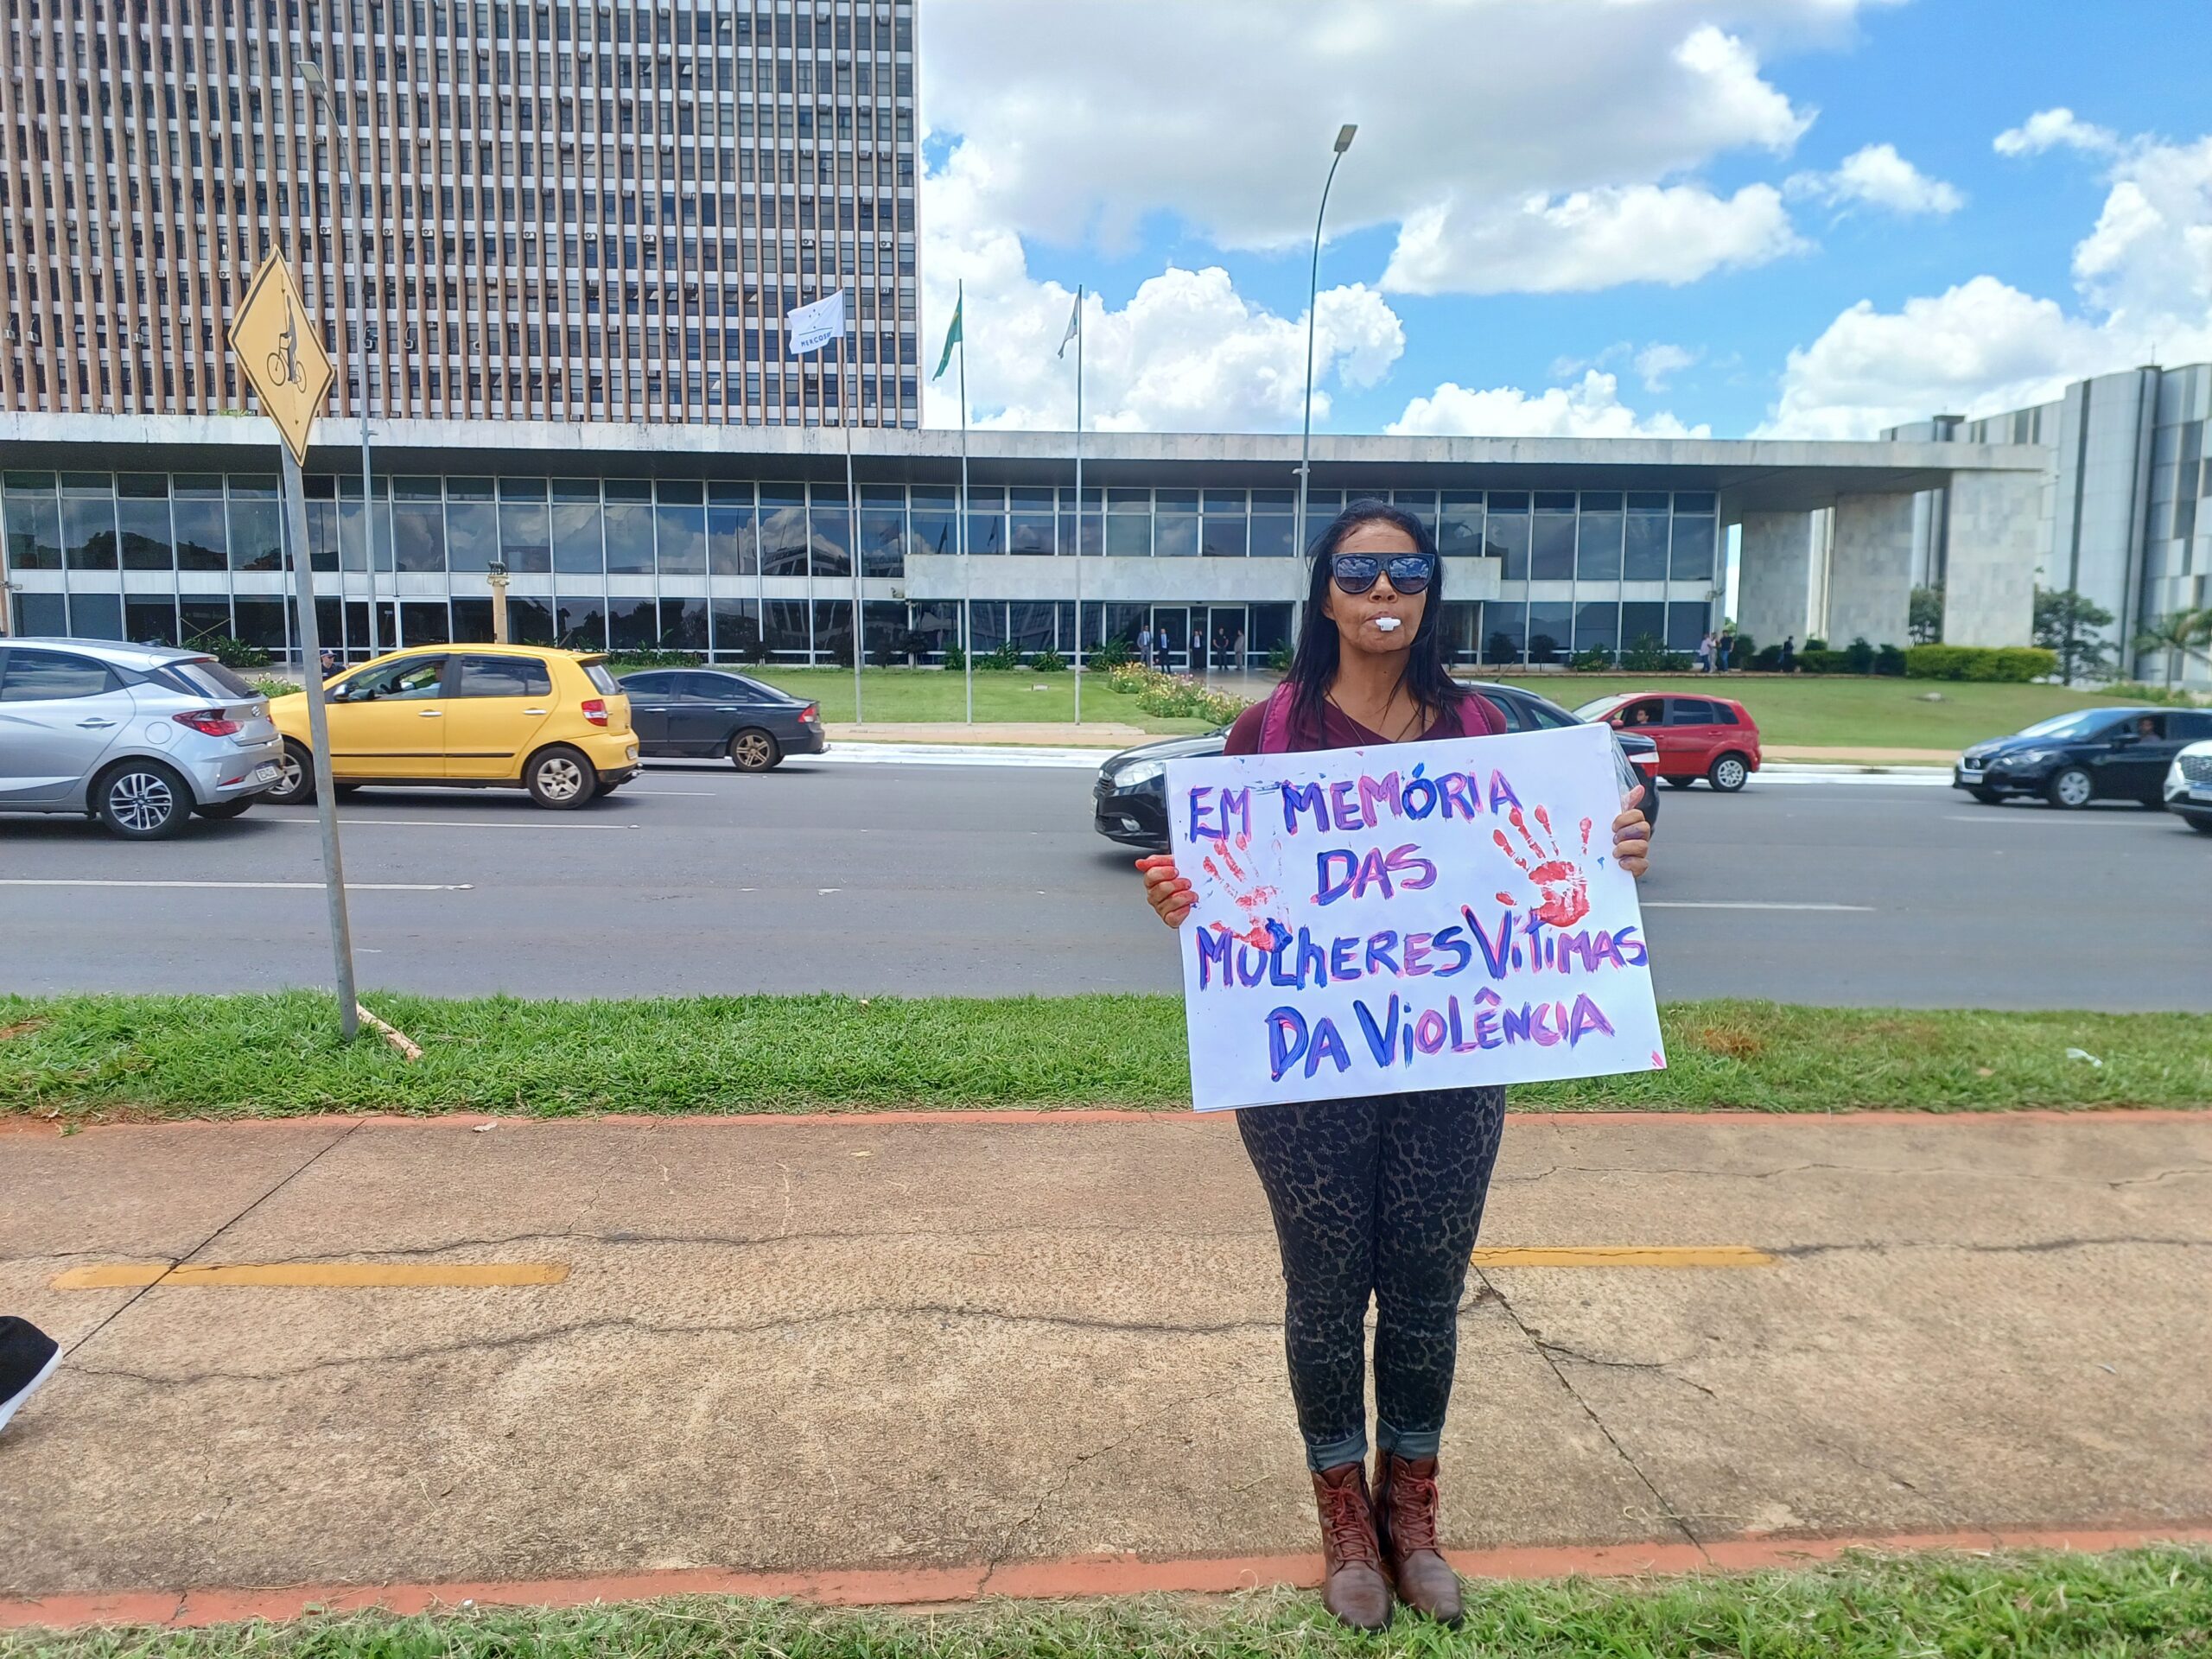 MERCOSUL
EM MEMÓRIA
DAS
MULHERES VÍTIMAS
DA VIOLÊNCIA